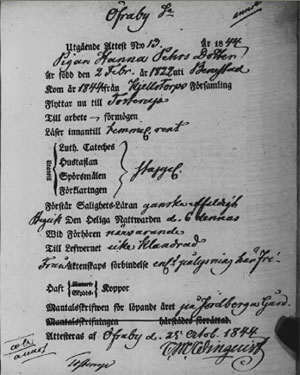 Öfraby Sn
Utgående Attest No 13 År 1844
Pigan Hanna Pehrs Dotter
är född den 2 Febr. år 1822 uti
Kom år 1844 från Kjellstorps Församling
Flyttar nu till Tosterup
Till arbete förmögen
Läser innantill temmel. rent
Utantill
Luth. Cateches
Hustaflan
Spörsmålen
Förklaringen
Förstår Salighets-Läran ganska
Begick Den Heliga Nattwarden d. 6 dennas
Wid Förhören närvarande
Till Lefwernet icke klandrad
Från Äktenskaps förbindelse enl. fri
Haft Koppor
Mantalsskrifwen för löpande året på Jordberga Gård.
Mantalsskrifningen härstädes förrättad
Attesteras af Öfraby d. 25 Octob. 1844